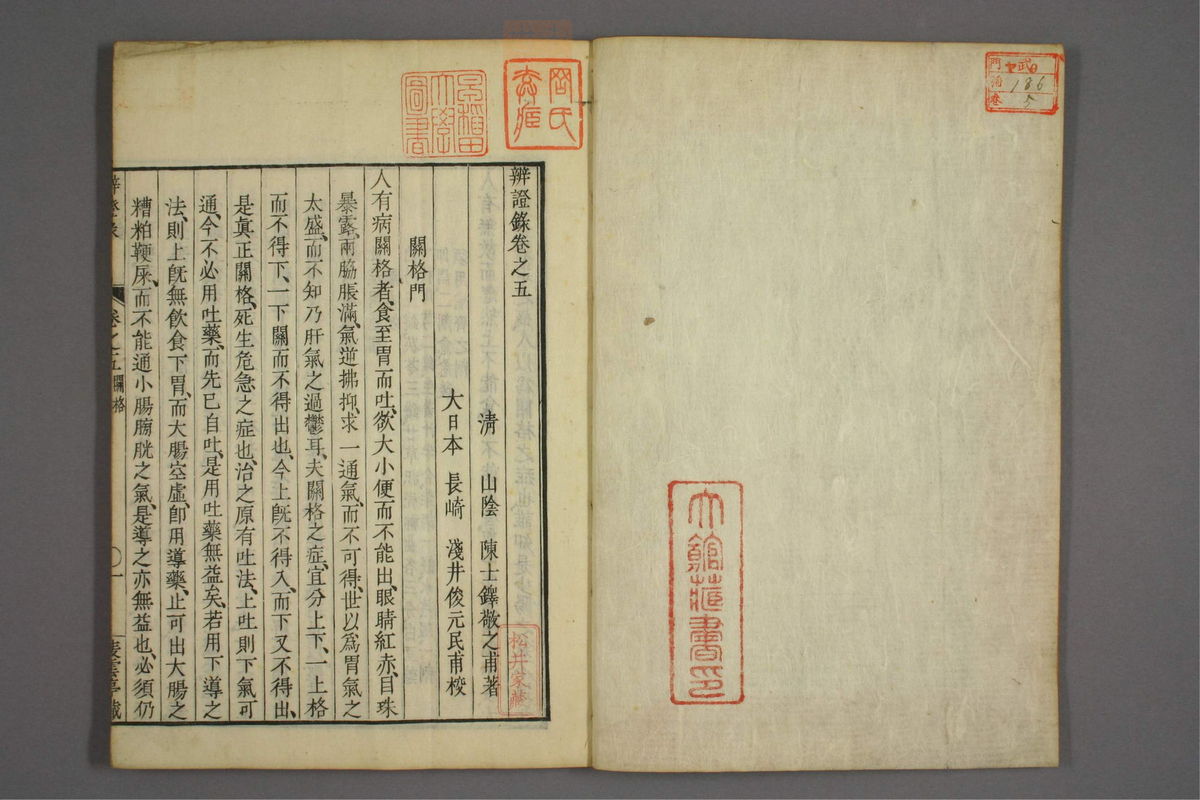 門 武
冊 186
卷 5
辨證錄卷之五
清 山陰 陳士鐸敬之甫著
大日本 長崎 淺井俊元民甫校
關格門
人有病關格者、食至胃而吐、欲大小便而不能出、眼睛紅赤、目珠
暴露、兩脇脹滿、氣逆拂抑、求一通氣、而不可得、世以爲胃氣之
太盛、而不知乃肝氣之過鬱耳、夫關格之症、宜分上下、一上格
而不得下、一下關而不得出也、今上旣不得入、而下又不得出、
是眞正關格、死生危急之症也、治之原有吐法、上吐則下氣可
通、今不必用吐藥、而先已自吐、是用吐藥無益矣、若用下導之
法、則上旣無飲食下胃、而大腸空虛、卽用導藥、止可出大腸之
糟粕鞕屎、而不能通小腸膀胱之氣、是導之亦無益也、必須仍
辨證錄 卷之五關格 〇一
早稻田大學圖書
松井家藏